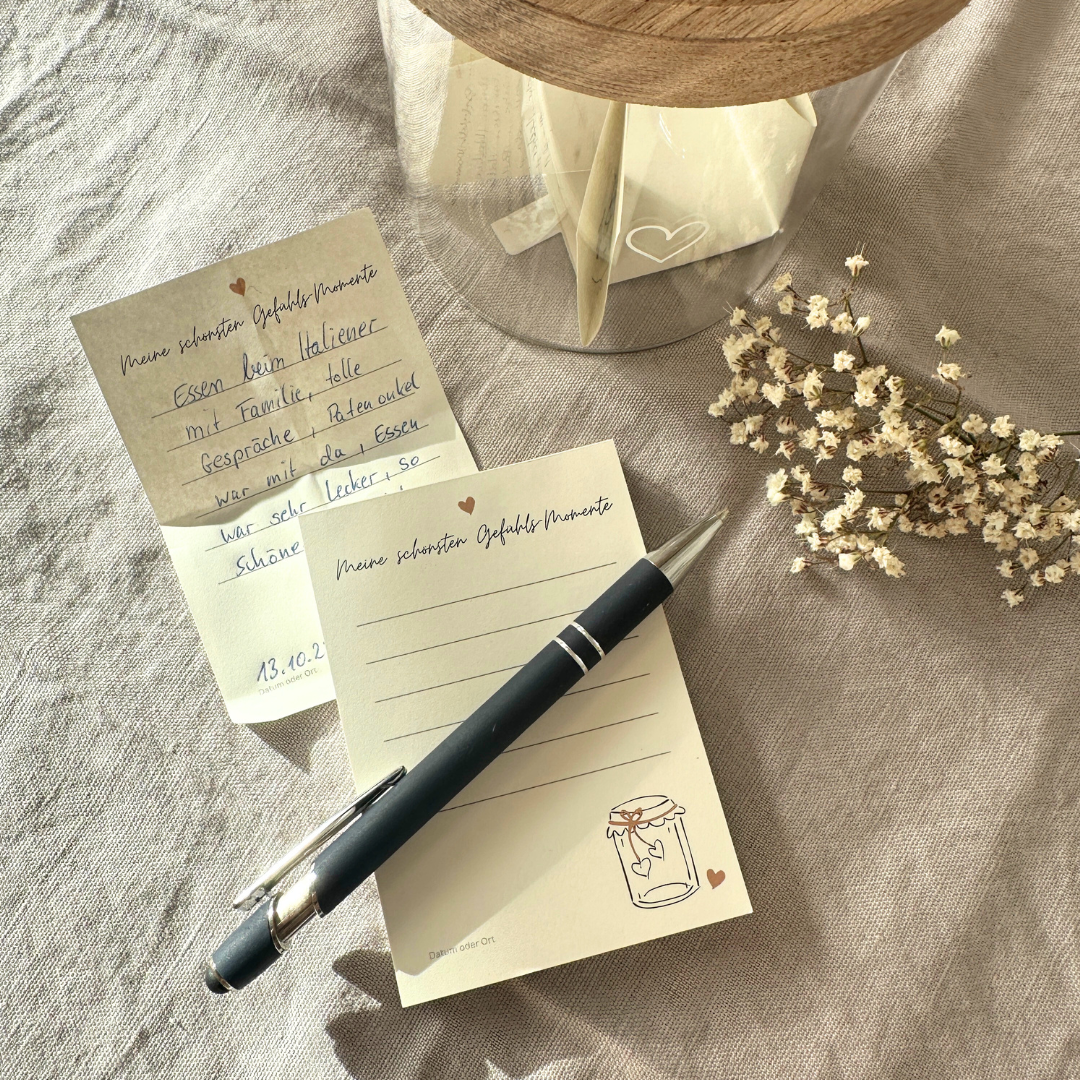 Meine schönsten Gefühls-Momente
Essen beim Italiener
mit Familie, tolle
Gespräche, Patenonkel
war mit da, Essen
war sehr lecker, so
schöne
13.10.2
Datum oder Ort
Meine schönsten Gefühls-Momente
Datum oder Ort